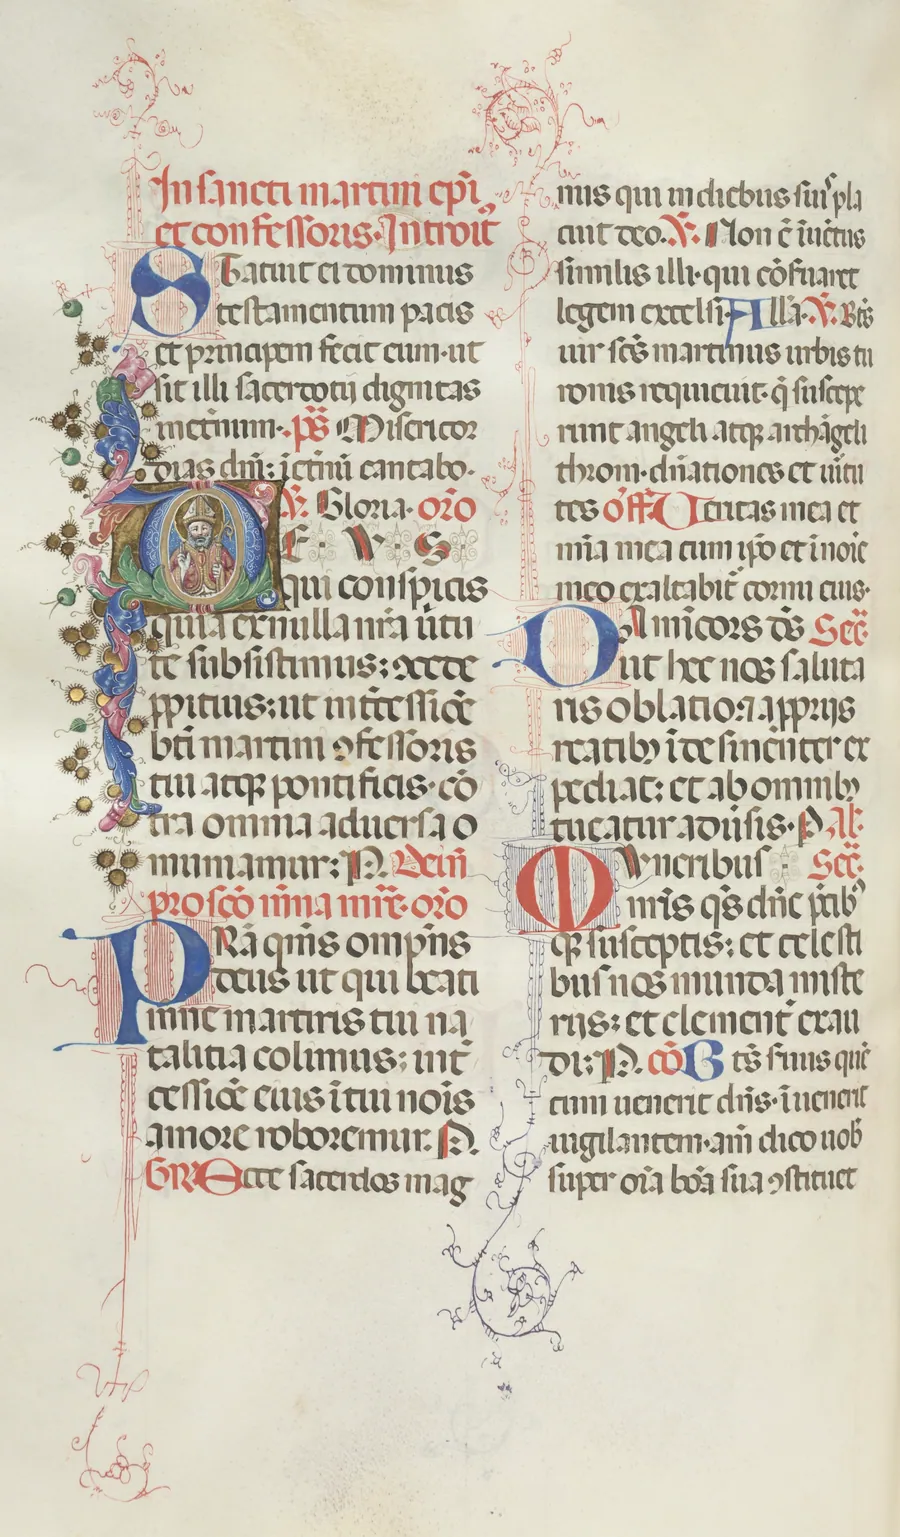 In sancti martini epi
et confessoris. Introit
Statuit ei dominus
testamentum pacis
et principem fecit eum. ut
sit illi sacerdotii dignitas
in eternum. ps Misericor
dias dni: i eternu cantabo.
V. Gloria. oro
DEVS
qui conspicis
quia ex nulla nra uirtu
te subsistimus: concede
ppitius: ut intercessioe
bti martini 9fessoris
tui atq pontificis. co
tra omnia aduersa
muniamur: P.
pro sco mena mre. oro
PRa qms omps
deus ut qui beati
menne martiris tui na
talitia colimus: int
cessioe eius i tui nois
amore roboremur. P.
GR Ecce sacerdos mag
nus qui in diebus suis pla
cuit deo. V. Non e iuetus
similis illi. qui coseruaret
legem excelsi. Alla. V. Bts
uir scs martinus urbis tu
ronis requieuit. q suscepe
runt angeli atq archageli
throni. dnationes et uirtu
tes off Ueritas mea et
mia mea cum ipo et i noie
meo exaltabit cornu eius.
DA misicors ds Sec
ut hec nos saluta
ris oblatio. et a ppriis
reatib9 i desinenter ex
pediat: et ab omnib9
tueatur aduersis. P Al.
Muneribus Sec.
nris qs dne pcib9
q susceptis: et celesti
bus nos munda miste
riis: et clementer exau
di: P. co Bts seruus que
cum uenerit dns. i uenerit
uigilantem. am dico uob
super oia boa sua 9stituet